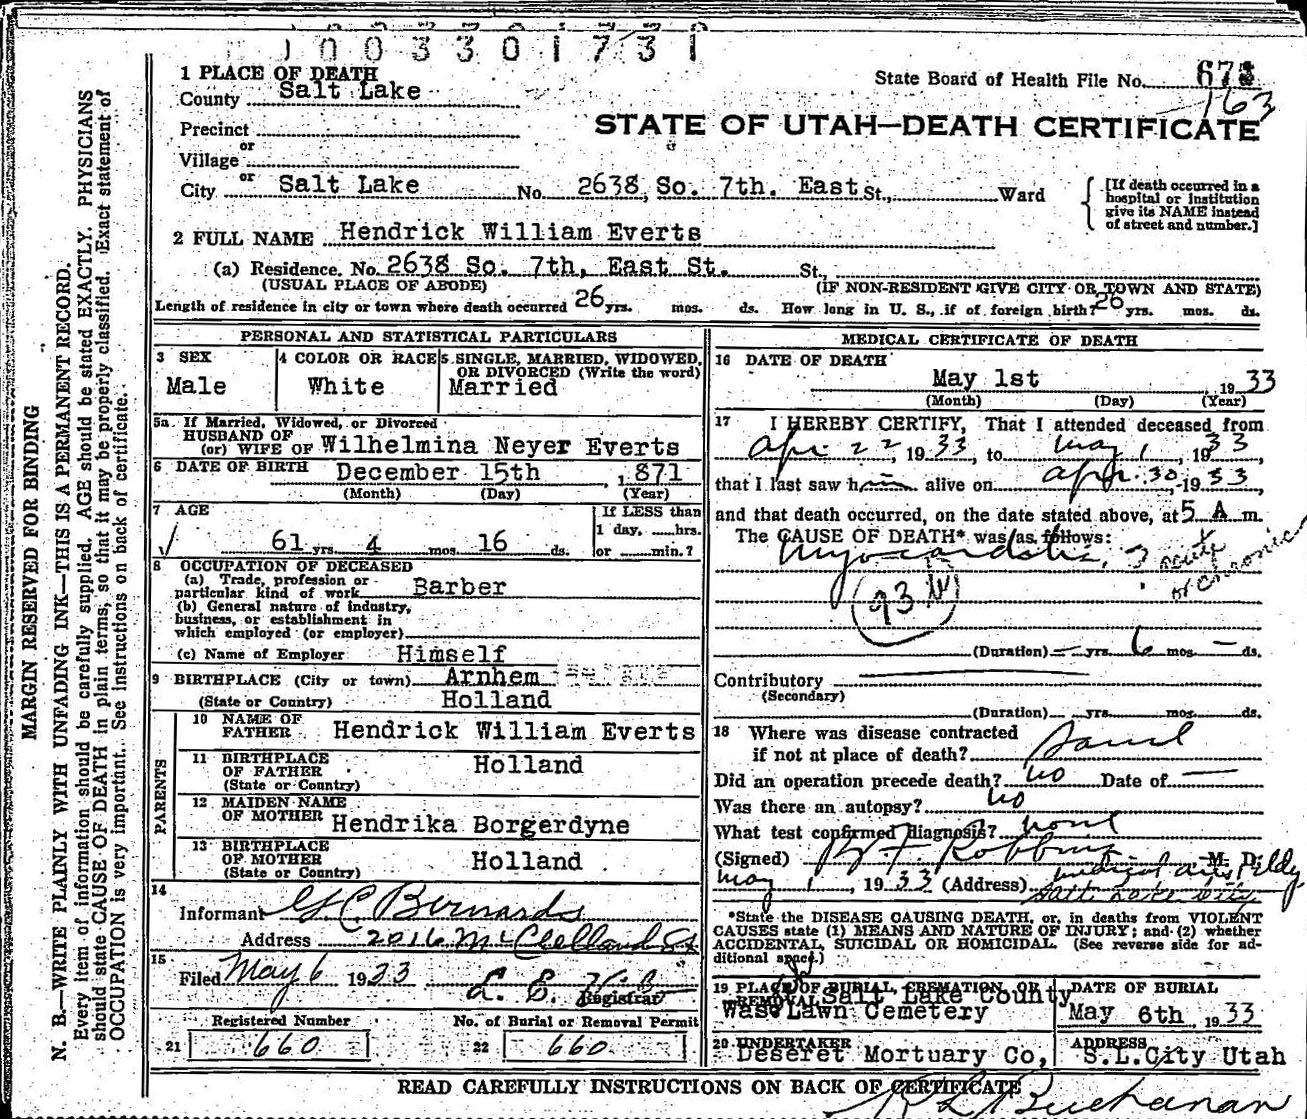 1003301731
1 PLACE OF DEATH
State Board of Health File No.
163
County Salt Lake
STATE OF UTAH—DEATH CERTIFICATE
Precinct
or
Village
or
City Salt Lake No. 2638, So. 7th. East St., Ward
[If death occurred in a
hospital or institution
give its NAME instead
of street and number.]
2 FULL NAME Hendrick William Everts
(a) Residence. No. 2638 So. 7th, East St. St.,
(USUAL PLACE OF ABODE) (IF NON-RESIDENT GIVE CITY OR TOWN AND STATE)
Length of residence in city or town where death occurred 26 yrs. mos. ds. How long in U. S., if of foreign birth? 26 yrs. mos. ds.
PERSONAL AND STATISTICAL PARTICULARS
3 SEX
Male
4 COLOR OR RACE
White
5 SINGLE, MARRIED, WIDOWED,
OR DIVORCED (Write the word)
Married
5a. If Married, Widowed, or Divorced
HUSBAND OF
(or) WIFE OF Wilhelmina Neyer Everts
6 DATE OF BIRTH December 15th, 1871
(Month) (Day) (Year)
7 AGE
61 yrs. 4 mos. 16 ds.
If LESS than
1 day, hrs.
or min.?
8 OCCUPATION OF DECEASED
(a) Trade, profession or
particular kind of work Barber
(b) General nature of industry,
business, or establishment in
which employed (or employer)
(c) Name of Employer Himself
9 BIRTHPLACE (City or town) Arnhem
(State or Country) Holland
PARENTS
10 NAME OF
FATHER Hendrick William Everts
11 BIRTHPLACE
OF FATHER Holland
(State or Country)
12 MAIDEN NAME
OF MOTHER Hendrika Borgerdyne
13 BIRTHPLACE
OF MOTHER Holland
(State or Country)
14
Informant G. C. Bernards
Address 2016 McClelland St
15
Filed May 6 1933
Registrar
Registered Number
21 660
No. of Burial or Removal Permit
22 660
MEDICAL CERTIFICATE OF DEATH
16 DATE OF DEATH
May 1st 1933
(Month) (Day) (Year)
17 I HEREBY CERTIFY, That I attended deceased from
Apr 22, 1933, to May 1, 1933,
that I last saw him alive on Apr. 30, 1933,
and that death occurred, on the date stated above, at 5 A m.
The CAUSE OF DEATH* was as follows:
Myocarditis, ? acute
or chronic
(Duration) — yrs. 6 mos. — ds.
Contributory
(Secondary)
(Duration) yrs. mos. ds.
18 Where was disease contracted
if not at place of death?
Did an operation precede death? no Date of —
Was there an autopsy? no
What test confirmed diagnosis? none
(Signed) Robbins M. D.
May 1, 1933 (Address) Medical Arts Bldg
Salt Lake City
*State the DISEASE CAUSING DEATH, or, in deaths from VIOLENT
CAUSES state (1) MEANS AND NATURE OF INJURY; and (2) whether
ACCIDENTAL, SUICIDAL OR HOMICIDAL. (See reverse side for ad-
ditional space.)
19 PLACE OF BURIAL, CREMATION, OR
REMOVAL Salt Lake County
Was. Lawn Cemetery
DATE OF BURIAL
May 6th, 1933
20 UNDERTAKER
Deseret Mortuary Co,
ADDRESS
S.L.City Utah
READ CAREFULLY INSTRUCTIONS ON BACK OF CERTIFICATE
Buchanan
MARGIN RESERVED FOR BINDING
N. B.—WRITE PLAINLY WITH UNFADING INK—THIS IS A PERMANENT RECORD.
Every item of information should be carefully supplied. AGE should be stated EXACTLY. PHYSICIANS
should state CAUSE OF DEATH in plain terms, so that it may be properly classified. Exact statement of
OCCUPATION is very important. See instructions on back of certificate.